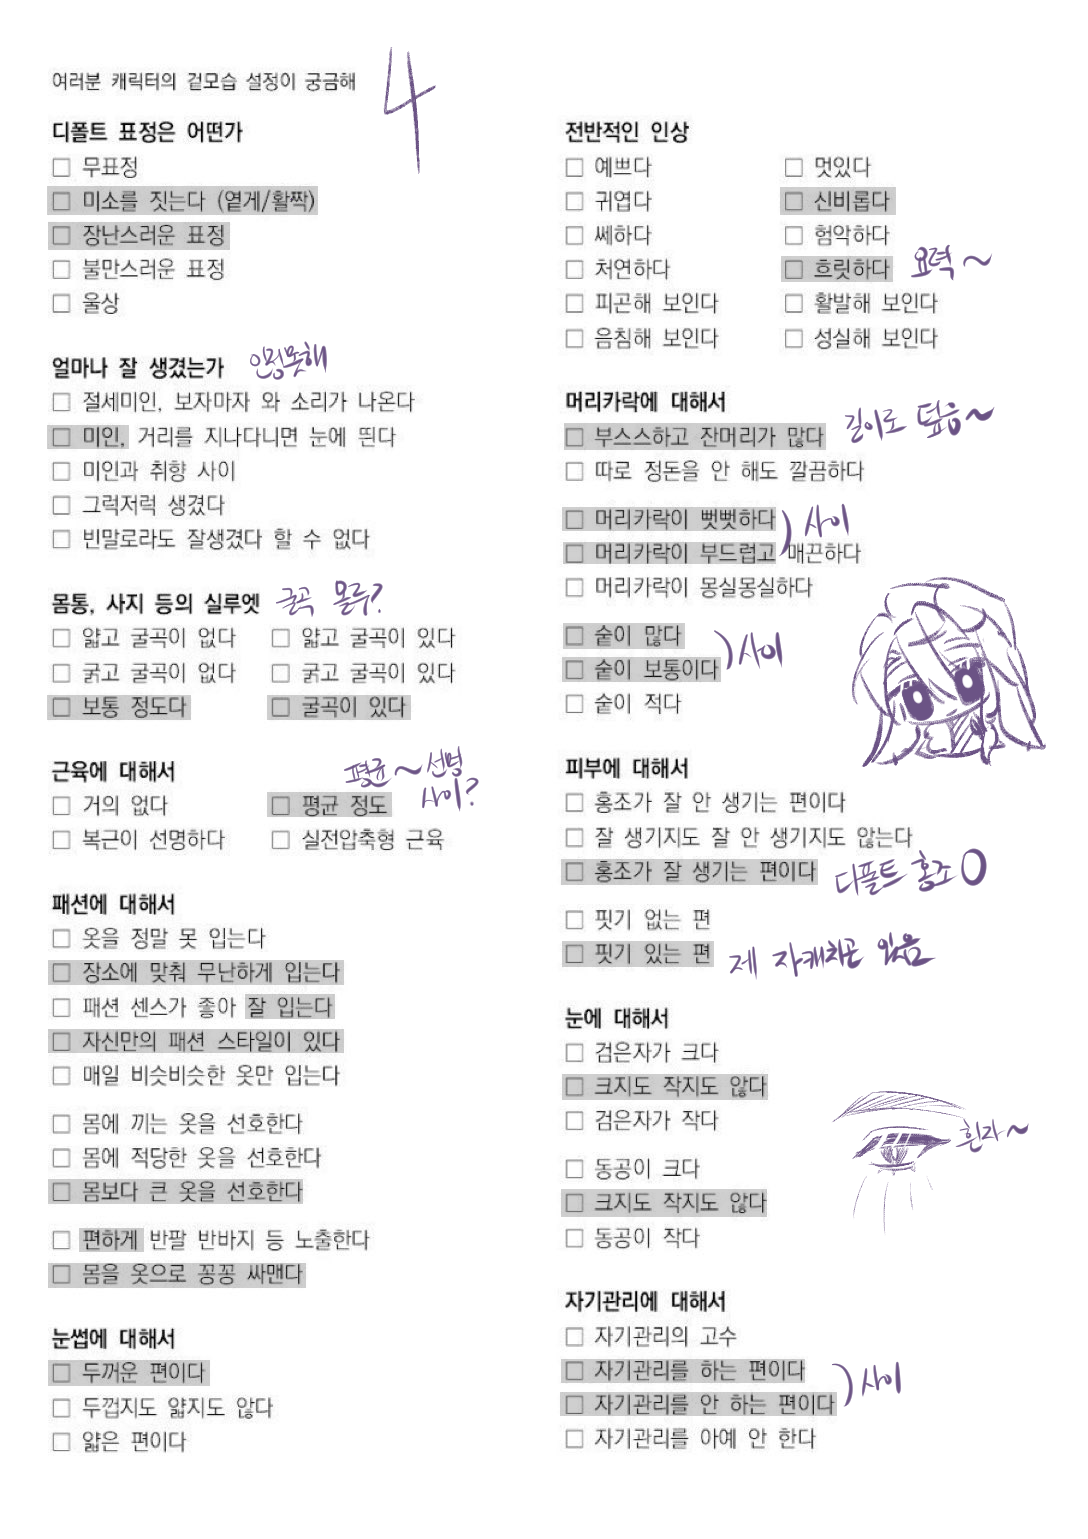 여러분 캐릭터의 겉모습 설정이 궁금해
4
디폴트 표정은 어떤가
□ 무표정
□ 미소를 짓는다 (옅게/활짝)
□ 장난스러운 표정
□ 불만스러운 표정
□ 울상
얼마나 잘 생겼는가 인정못해
□ 절세미인, 보자마자 와 소리가 나온다
□ 미인, 거리를 지나다니면 눈에 띈다
□ 미인과 취향 사이
□ 그럭저럭 생겼다
□ 빈말로라도 잘생겼다 할 수 없다
몸통, 사지 등의 실루엣 굴곡 몰루?
□ 얇고 굴곡이 없다 □ 얇고 굴곡이 있다
□ 굵고 굴곡이 없다 □ 굵고 굴곡이 있다
□ 보통 정도다 □ 굴곡이 있다
근육에 대해서 평균~선명
사이?
□ 거의 없다 □ 평균 정도
□ 복근이 선명하다 □ 실전압축형 근육
패션에 대해서
□ 옷을 정말 못 입는다
□ 장소에 맞춰 무난하게 입는다
□ 패션 센스가 좋아 잘 입는다
□ 자신만의 패션 스타일이 있다
□ 매일 비슷비슷한 옷만 입는다
□ 몸에 끼는 옷을 선호한다
□ 몸에 적당한 옷을 선호한다
□ 몸보다 큰 옷을 선호한다
□ 편하게 반팔 반바지 등 노출한다
□ 몸을 옷으로 꽁꽁 싸맨다
눈썹에 대해서
□ 두꺼운 편이다
□ 두껍지도 얇지도 않다
□ 얇은 편이다
전반적인 인상
□ 예쁘다 □ 멋있다
□ 귀엽다 □ 신비롭다
□ 쎄하다 □ 험악하다
□ 처연하다 □ 흐릿하다 요력~
□ 피곤해 보인다 □ 활발해 보인다
□ 음침해 보인다 □ 성실해 보인다
머리카락에 대해서
□ 부스스하고 잔머리가 많다 길이로 덮음~
□ 따로 정돈을 안 해도 깔끔하다
□ 머리카락이 뻣뻣하다
□ 머리카락이 부드럽고 매끈하다 )사이
□ 머리카락이 몽실몽실하다
□ 숱이 많다
□ 숱이 보통이다 )사이
□ 숱이 적다
피부에 대해서
□ 홍조가 잘 안 생기는 편이다
□ 잘 생기지도 잘 안 생기지도 않는다
□ 홍조가 잘 생기는 편이다 디폴트 홍조O
□ 핏기 없는 편
□ 핏기 있는 편 제 자캐치곤 있음
눈에 대해서
□ 검은자가 크다
□ 크지도 작지도 않다
□ 검은자가 작다
흰자~
□ 동공이 크다
□ 크지도 작지도 않다
□ 동공이 작다
자기관리에 대해서
□ 자기관리의 고수
□ 자기관리를 하는 편이다
□ 자기관리를 안 하는 편이다 )사이
□ 자기관리를 아예 안 한다